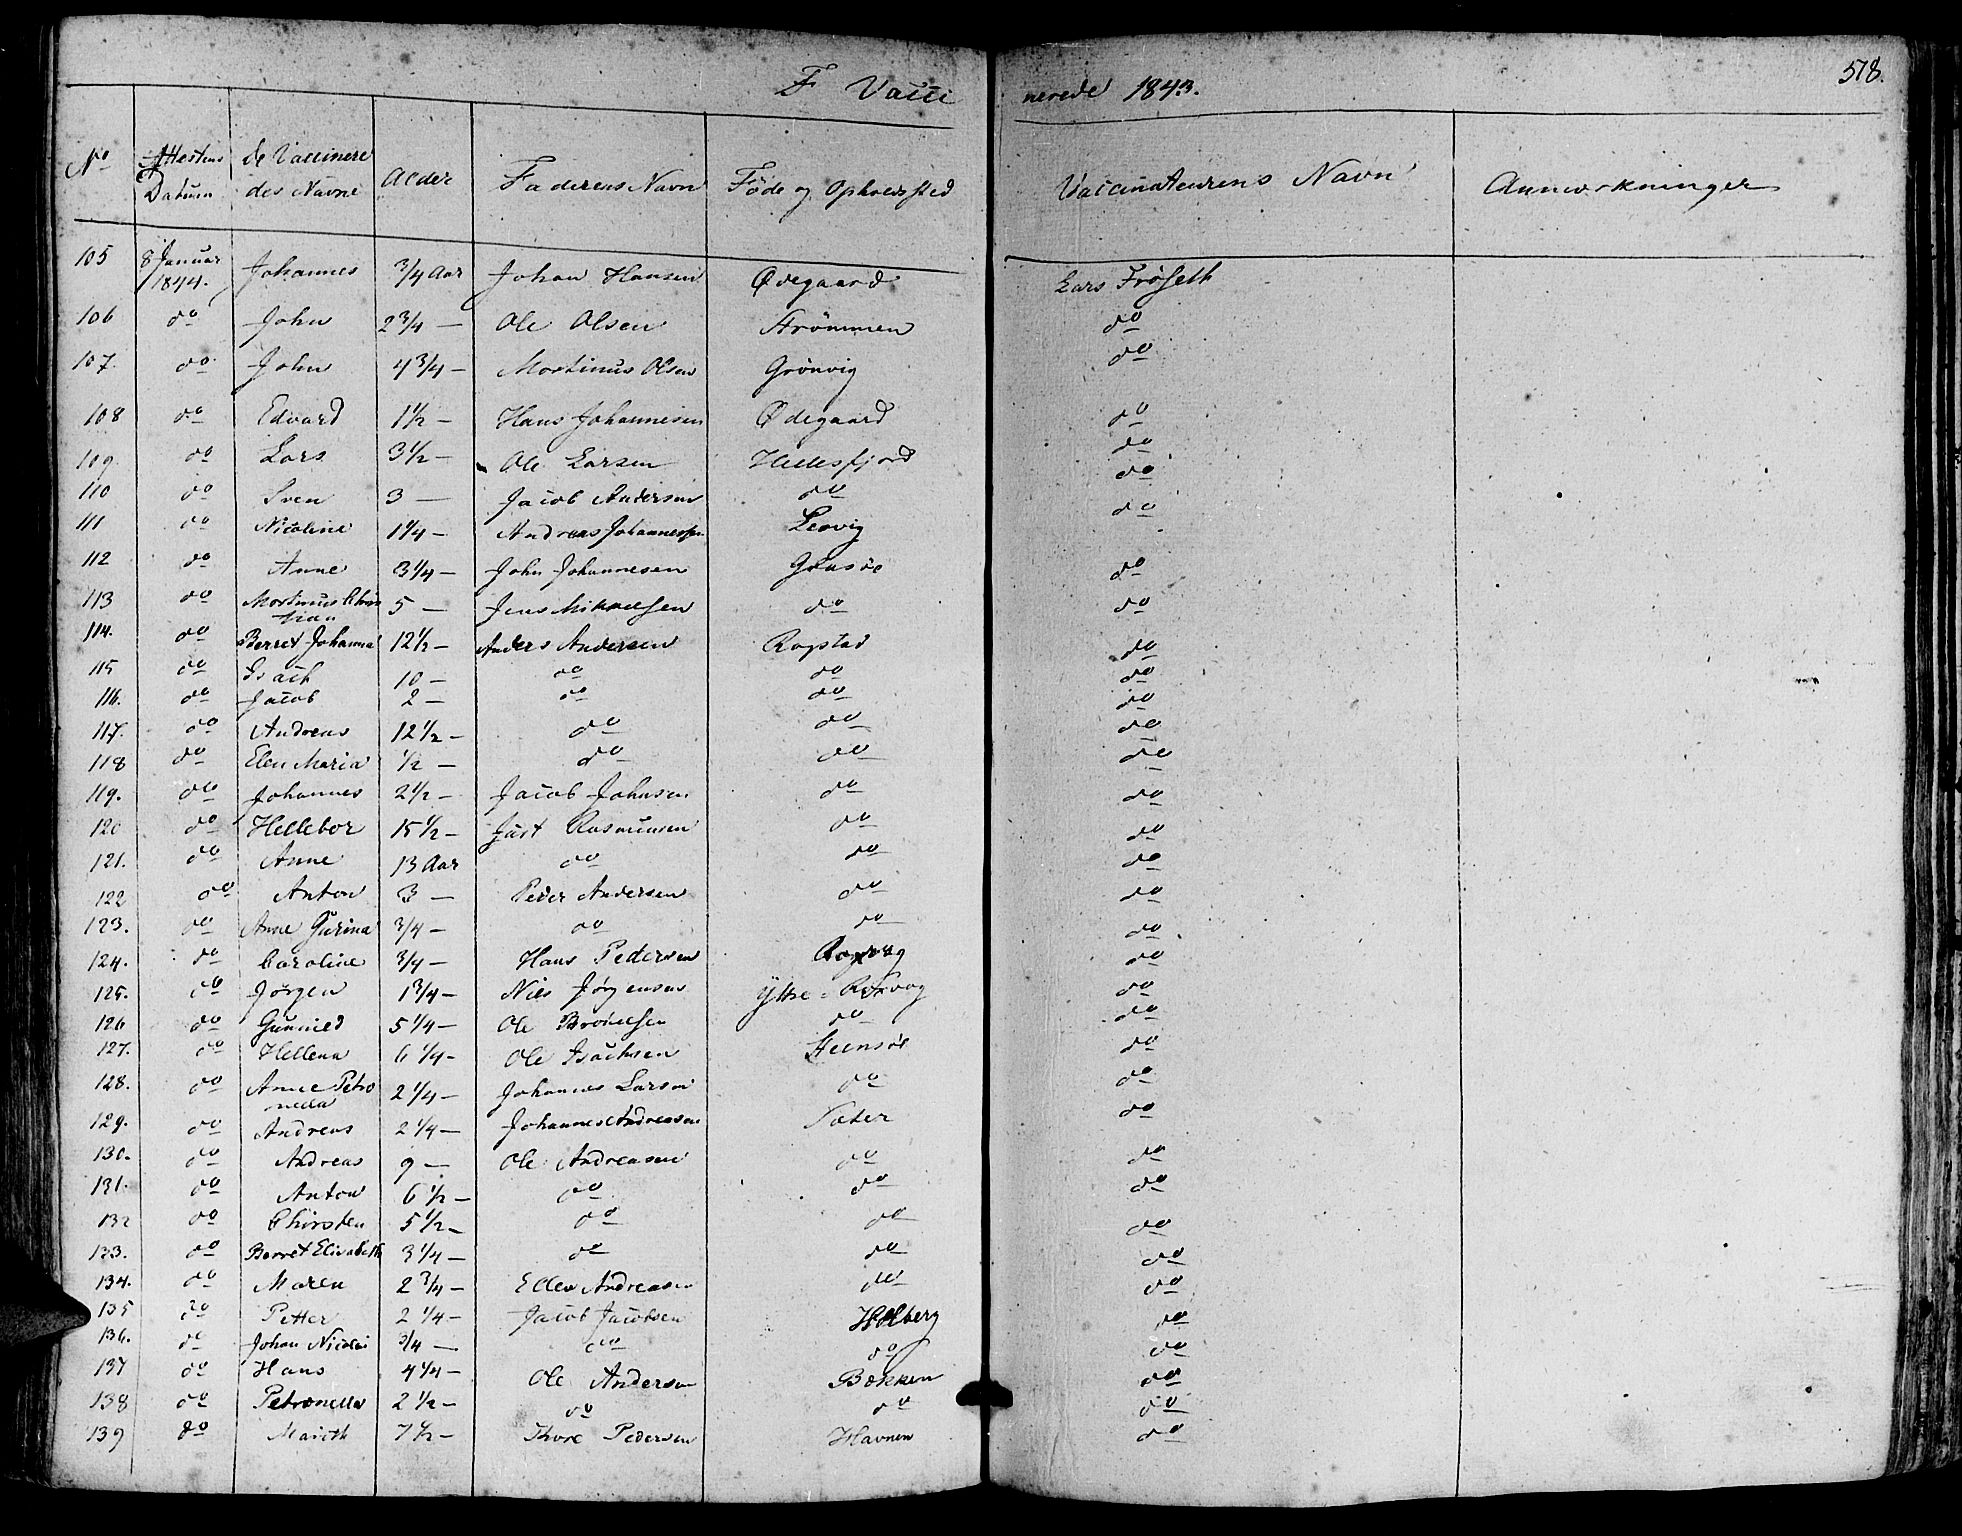 F Vacci nerede 1843. 578.
No Attestens Datum De Vaccinere des Navne Alder Faderens Navn Føde og Opholdssted Vaccinateurens Navn Anmærkninger
105 8 Januar 1844. Johannes 3/4 Aar Johan Hansen Ødegaard Lars Frøseth
106 do John 2 3/4 — Ole Olsen Strömmen do
107. do John 4 3/4 — Mortinus Olsen Grönvig do
108 do Edvard 1 1/2 — Hans Johannesen Ødegaard do
109 do Lars 3 1/2 — Ole Larsen Hellesfjord do
110 do Sven 3 — Jacob Andersen do do
111 do Nicoline 1 1/4 — Andreas Johannessen Leovig do
112 do Anne 3 1/4 — John Johannesen do
113 do Mortinus Chris tian 5 — Jens Mikkelsen do do
114. do Berret Johanna 12 1/2 — Anders Andersen Ragstad do
115 do Isach 10 — do do do
116. do Jacob 2 — do do do
117. do Andreas 12 1/2 — do do do
118 do Elen Maria 1/2 — do do do
119. do Johannes 2 1/2 — Jacob Johnsen do do
120 do Hellebor 15 1/2 — Just Rasmussen do do
121. do Anne 13 Aar do do do
122 do Anton 3 — Peder Andersen do do
123. do Anne Gurina 3/4 — do do do
124. do Caroline 3/4 — Hans Pedersen do
125. do Jörgen 1 3/4 — Nils Jörgensen Yttre = do
126 do Gunnild 5 1/4 — Ole do do
127. do Hellena 6 1/4 — Ole Isachsen Steensöe do
128. do Anne Petro nella 2 1/4 — Johannes Larsen do do
129. do Andreas 2 1/4 — Johannes Andreasen Sæter do
130. do Andreas 9 — Ole Andreasen do do
131. do Anton 6 1/2 — do do do
132 do Chirsten 5 1/2 — do do do
133. do Berret Elisabeth 3 1/4 — do do do
134. do Maren 2 3/4 — Ellev Andreasen do do
135 do Petter 2 1/4 — Jacob Jacobsen do
136. do Johan Nicolai 3/4 — do do do
137 do Hans 4 1/4 — Ole Andersen Bækken do
138 do Petronella 2 1/2 — do do do
139 do Marith 7 1/2 — Thore Pedersen Havnen do